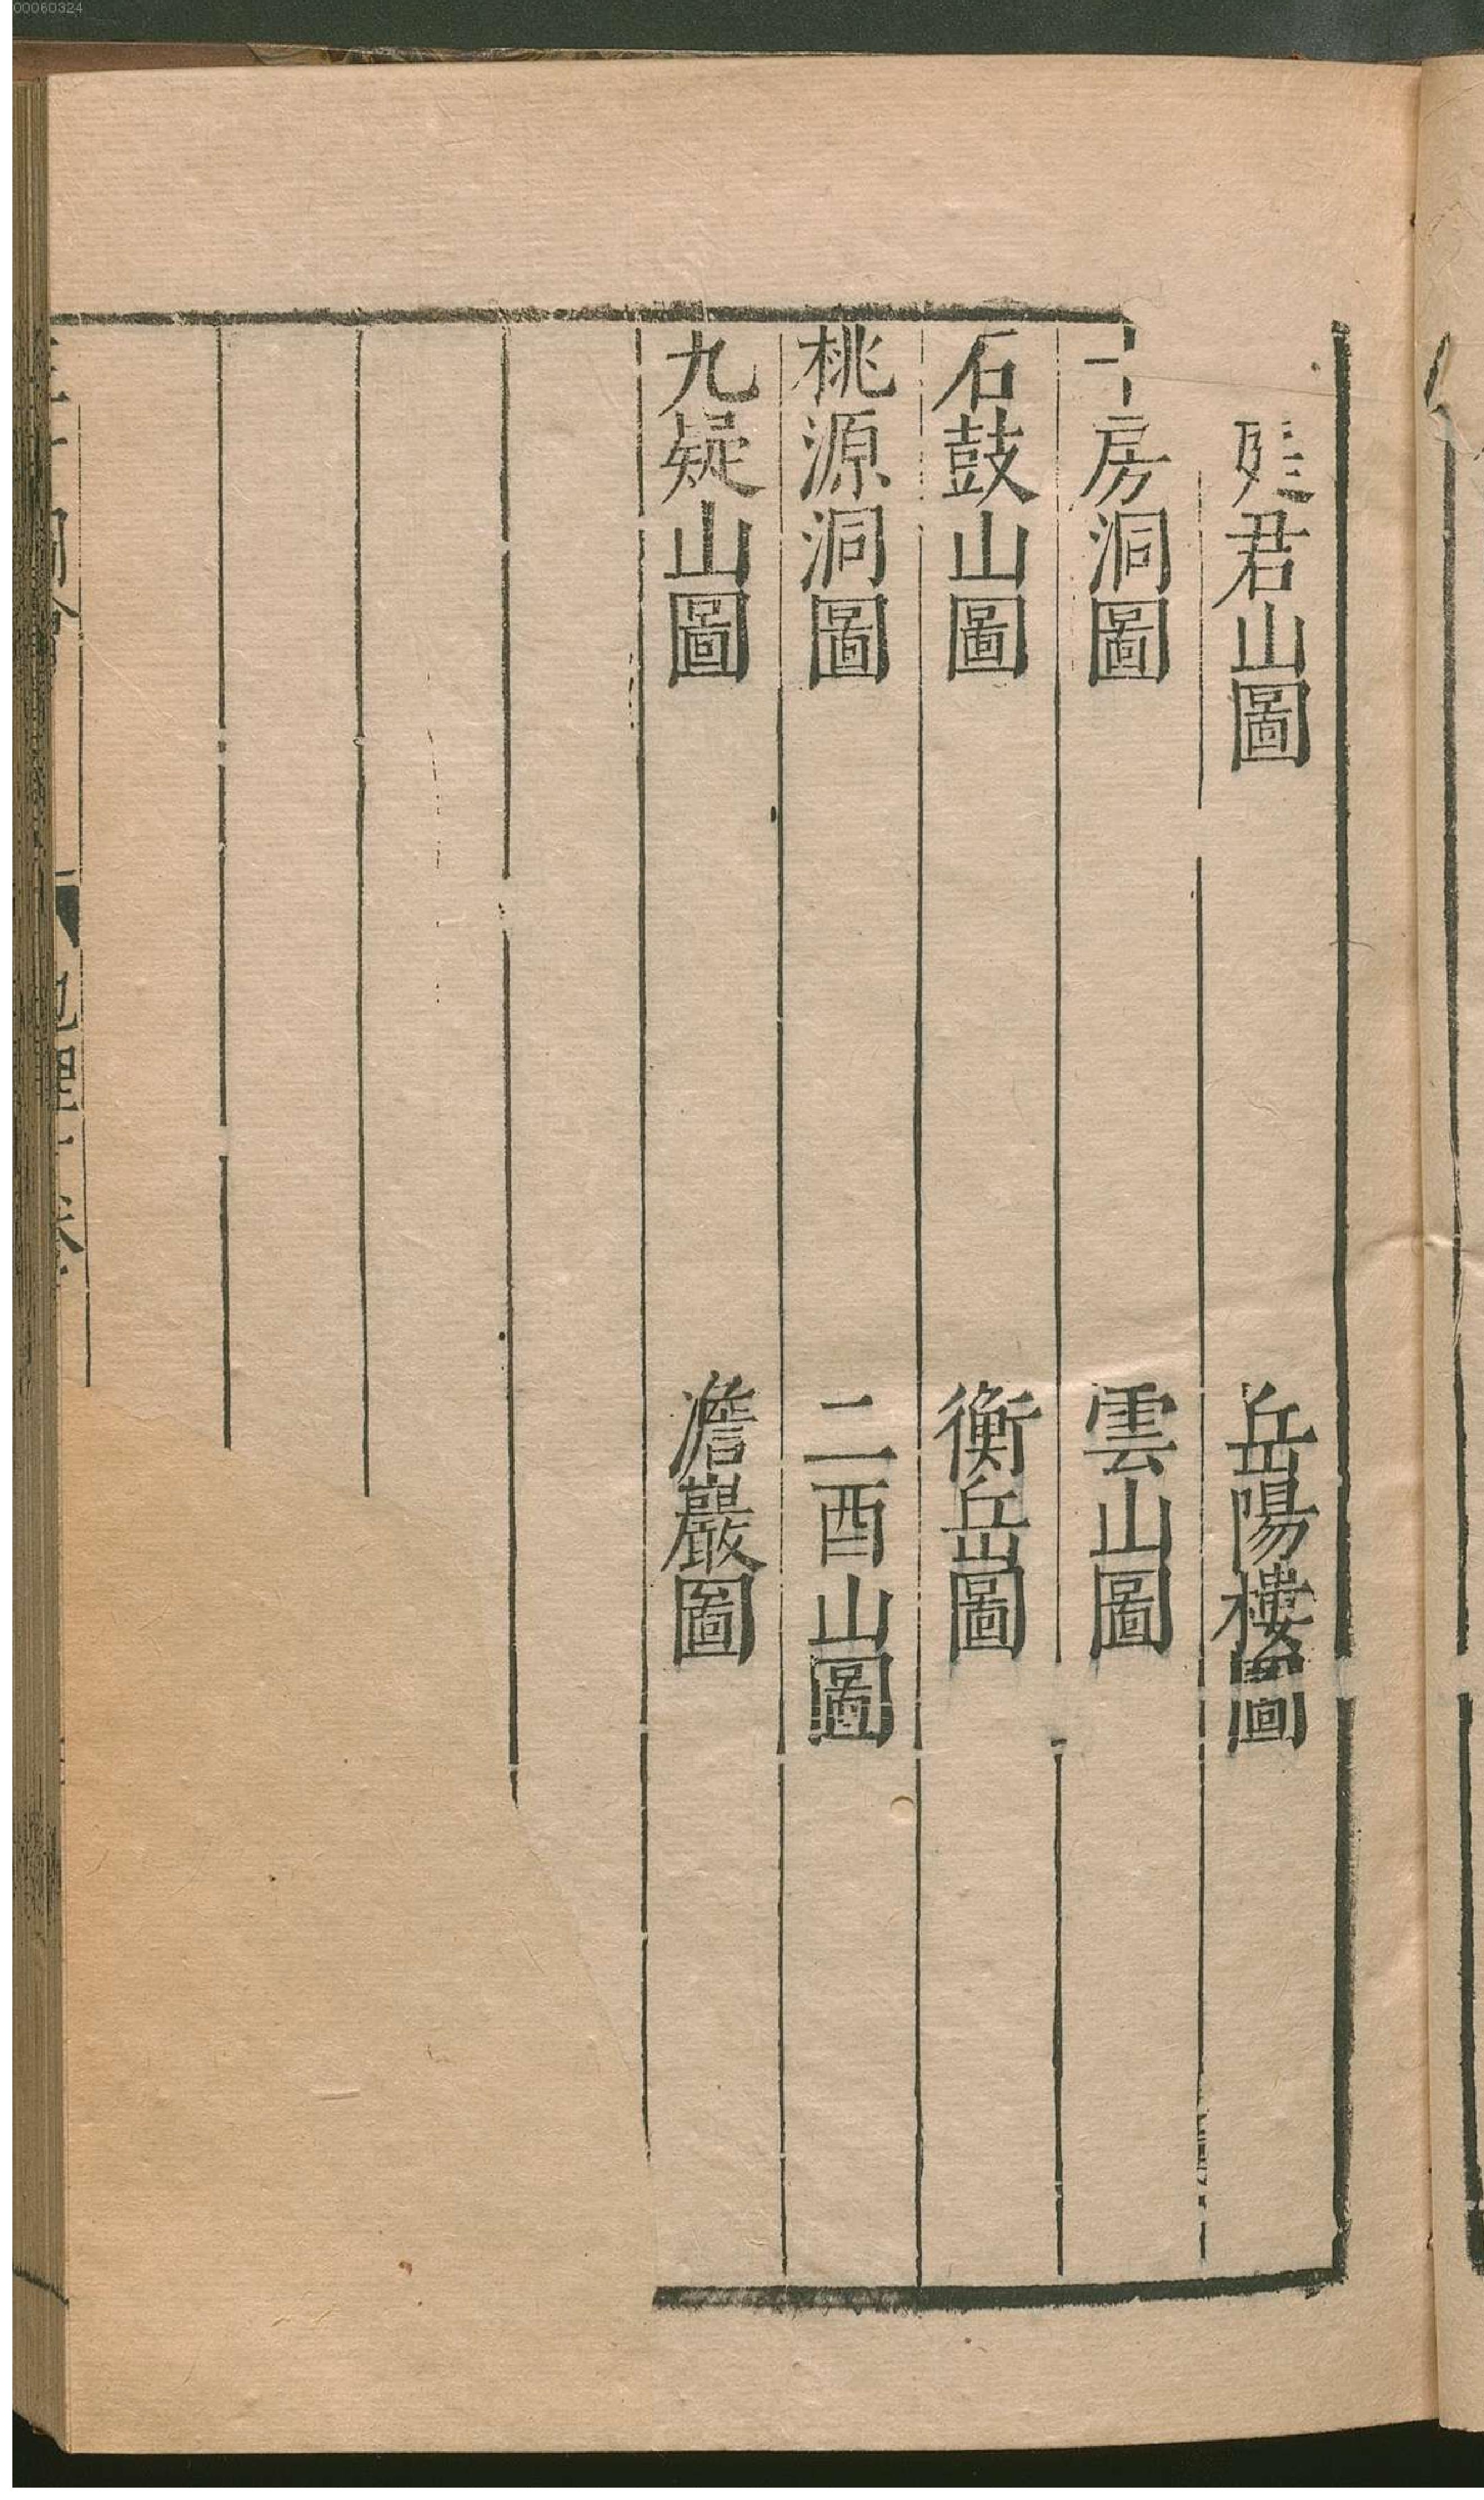 00060324
君山圖 岳陽樓圖
房洞圖 雲山圖
石鼓山圖 衡岳圖
桃源洞圖 二酉山圖
九疑山圖 澹巖圖